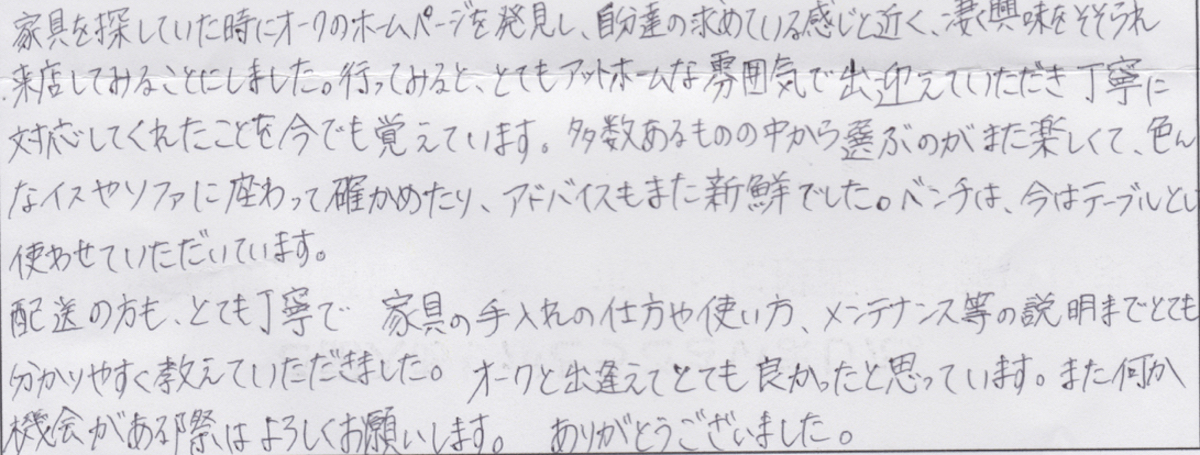 家具を探していた時にオークのホームページを発見し、自分達の求めている感じと近く、凄く興味をそそられ
来店してみることにしました。行ってみると、とてもアットホームな雰囲気で出迎えていただき丁寧に
対応してくれたことを今でも覚えています。多数あるものの中から選ぶのがまた楽しくて、色ん
なイスやソファに座わって確かめたり、アドバイスもまた新鮮でした。ベンチは、今はテーブルとし
使わせていただいています。
配送の方も、とても丁寧で 家具の手入れの仕方や使い方、メンテナンス等の説明までとても
分かりやすく教えていただきました。 オークと出逢えてとても良かったと思っています。また何か
機会がある際はよろしくお願いします。 ありがとうございました。